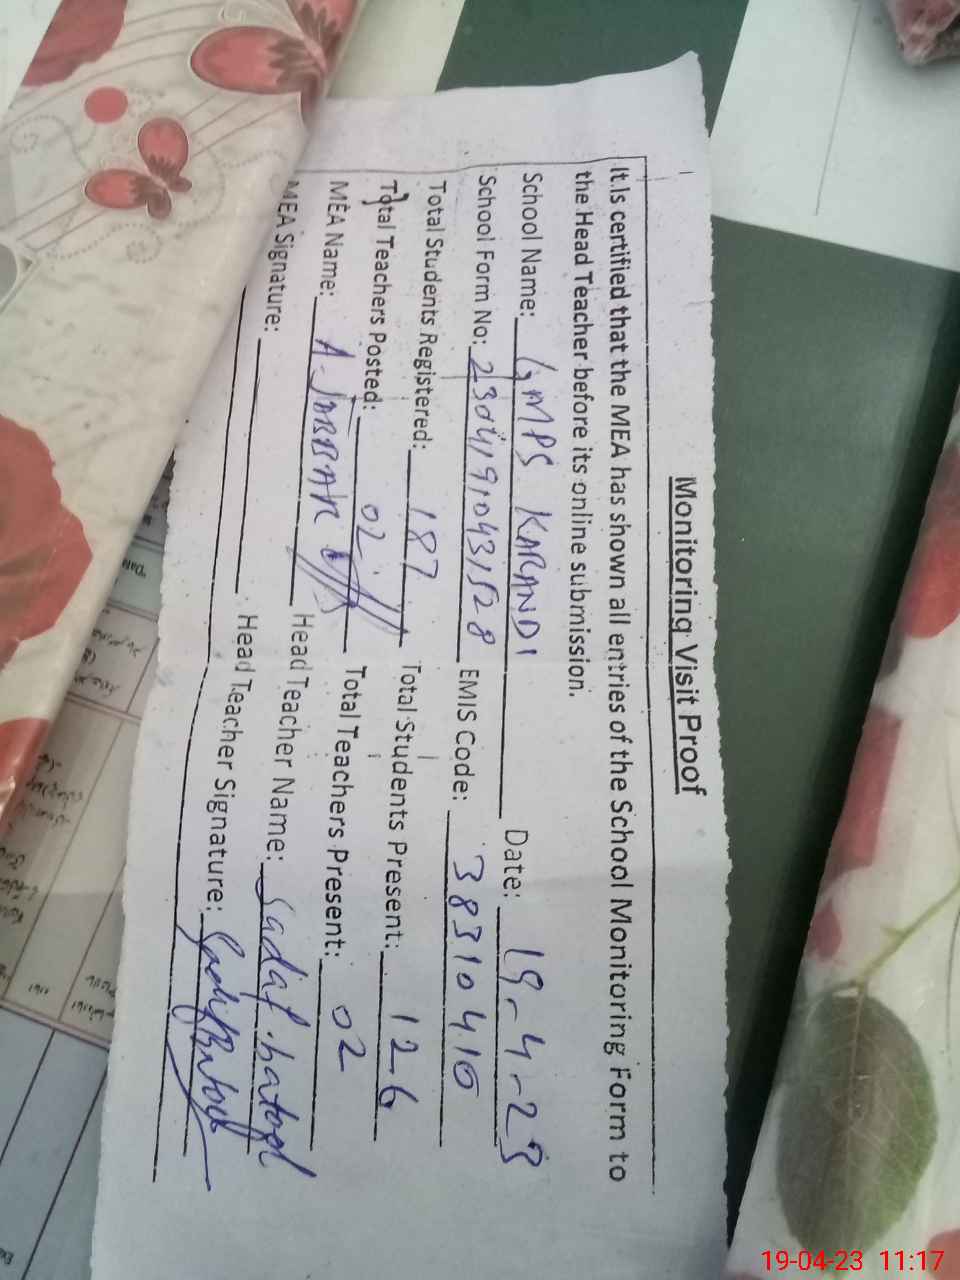 Monitoring Visit Proof
It.Is certified that the MEA has shown all entries of the School Monitoring Form to
the Head Teacher before its online submission.
School Name: GMPS KARANDI Date: 19-4-23
School Form No: 23041910431528 EMIS Code: 38310410
Total Students Registered: 187 Total Students Present: 126
Total Teachers Posted: 02 Total Teachers Present: 02
MEA Name: A-JABBAR Head Teacher Name: Sadaf.batool
MEA Signature: Head Teacher Signature:
19-04-23 11:17